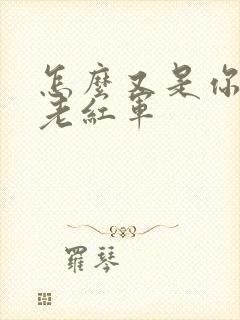 怎麼又是你
老紅軍
羅琴